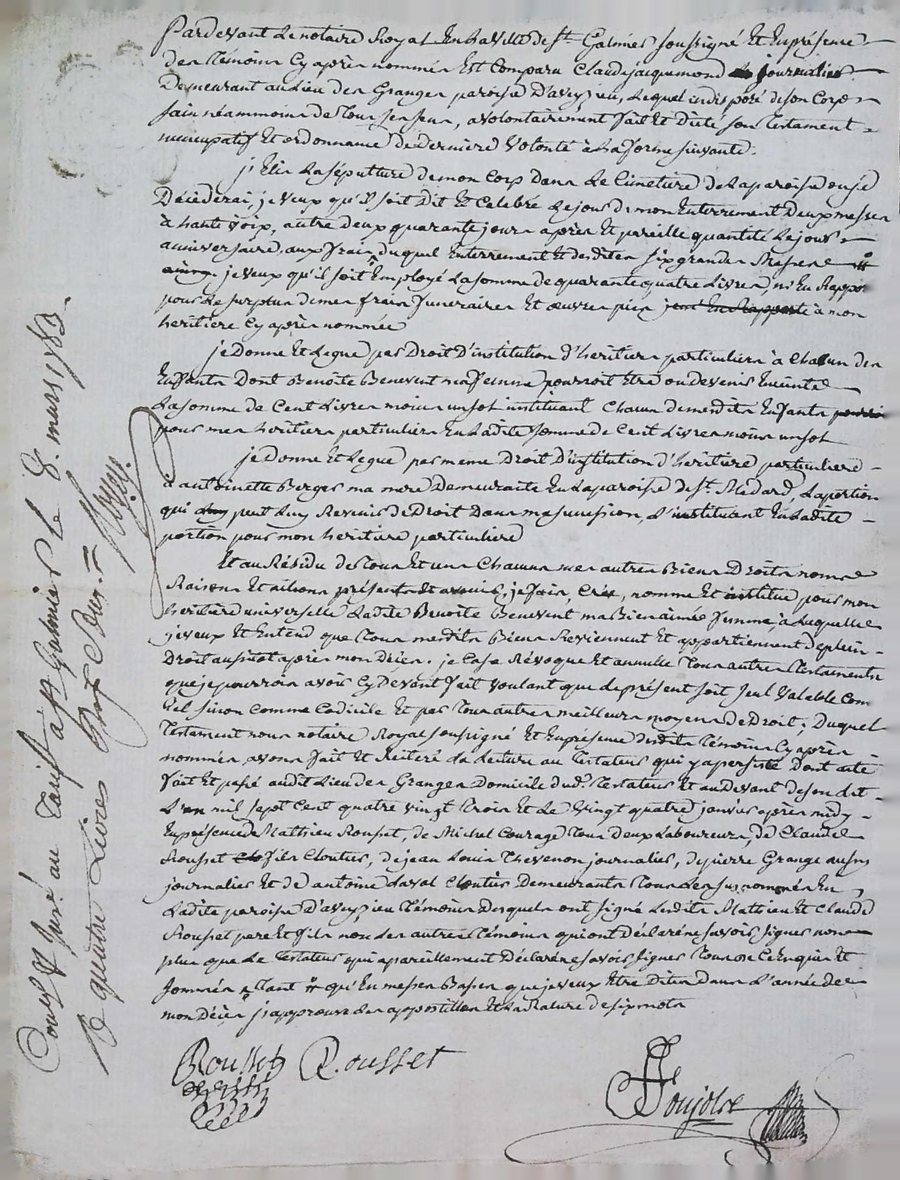 Pardevant Le notaire Royal En la ville de St. Galmier soussigné Et En presence
des Témoins Cy après nommés Est Comparu Claude jacquemond journalier
Demeurant au Lieu des Granges paroisse D'aveyzieu, Lequel indisposé de son Corps
sain néammoins de Tous ses sens, a volontairement fait Et dicté son Testament
nuncupatif Et ordonnance de derniere volonté à La forme suivante.
j'Elis La sépulture de mon Corps dans Le Cimetiere de La paroisse ou je
Décèderai, je veux qu'il soit Dit Et Celebré Le jour de mon Enterrement Deux messes
à haute voix, autre deux quarante jours après Et pareille quantité Le jour
anniversaire, aux frais duquel Enterrement Et desdites six grandes Messes
je veux qu'il soit Employé La somme de quarante quatre Livres, m'En Rapporte
pour Le surplus de mes frais funeraires Et œuvres pies à mon
heritiere Cy après nommée
je donne Et Legue par Droit D'institution d'heritiers particuliers à Chacun des
Enfants Dont Benoite Benevent ma femme pourroit Etre ou devenir Enceinte
La somme de Cent Livres moins un sol instituant Chacun de mesdits Enfants
pour mes heritiers particuliers En Ladite somme de Cent Livres moins un sol
je donne Et Legue par meme Droit D'institution d'heritiere particuliere
à antoinette Berger ma mere Demeurante En La paroisse de St. Médard, La portion
qui peut Luy Revenir de Droit Dans ma succession, L'instituant En Ladite
portion pour mon heritiere particuliere
Et au Résidu de Tous Et uns Chacuns mes autres Biens Droits noms
Raisons Et actions présents Et avenir, je fais, Crée, nomme Et institue pour mon
heritiere universelle Ladite Benoite Benevent ma Bien aimée femme, à Laquelle
je veux Et Entend que Tous mesdits Biens Reviennent Et appartiennent de plein
Droit aussitot après mon Décès. je Casse Révoque Et annulle Tous autres Testaments
que je pourrois avoir Cy Devant fait voulant que Le présent soit seul Valable Comme
Tel sinon Comme Codicile Et par Tous autres meilleurs moyens de Droit; Duquel
Testament nous notaire Royal soussigné Et En presence desdits Témoins Cy après
nommés, avons fait Et Réiteré La Lecture au Testateur qui y a persisté Dont acte
fait Et passé audit Lieu des Granges Domicile dud. Testateur Et au devant de son Lit
L'an mil sept Cent quatre vingt Trois Et Le vingt quatre janvier après midy
En présence de Mathieu Rousset, de Michel Courage Tous deux Laboureurs, de Claude
Rousset fils Cloutier, de jean Louis Thevenon journalier, de pierre Grange aussy
journalier Et de antoine Laval Cloutier Demeurants Tous Les susnommés En
Ladite paroisse D'aveyzieu Témoins Desquels ont signé Lesdits Mathieu Et Claude
Rousset pere Et fils non Les autres Témoins qui ont déclaré ne savoir signer non
plus que Le Testateur qui a pareillement Déclaré ne savoir signer Tous de Ce Enquis Et
sommés Tant qu'En messes Basses que je veux Etre Dites dans L'année de
mon Décès j'approuve Les appostilles Et La Rature de six mots
Rousset Rousset
Poujolre
Cont. & Insé au Tarif à St Galmier Le 8. mars 1783.
R quatre Livres